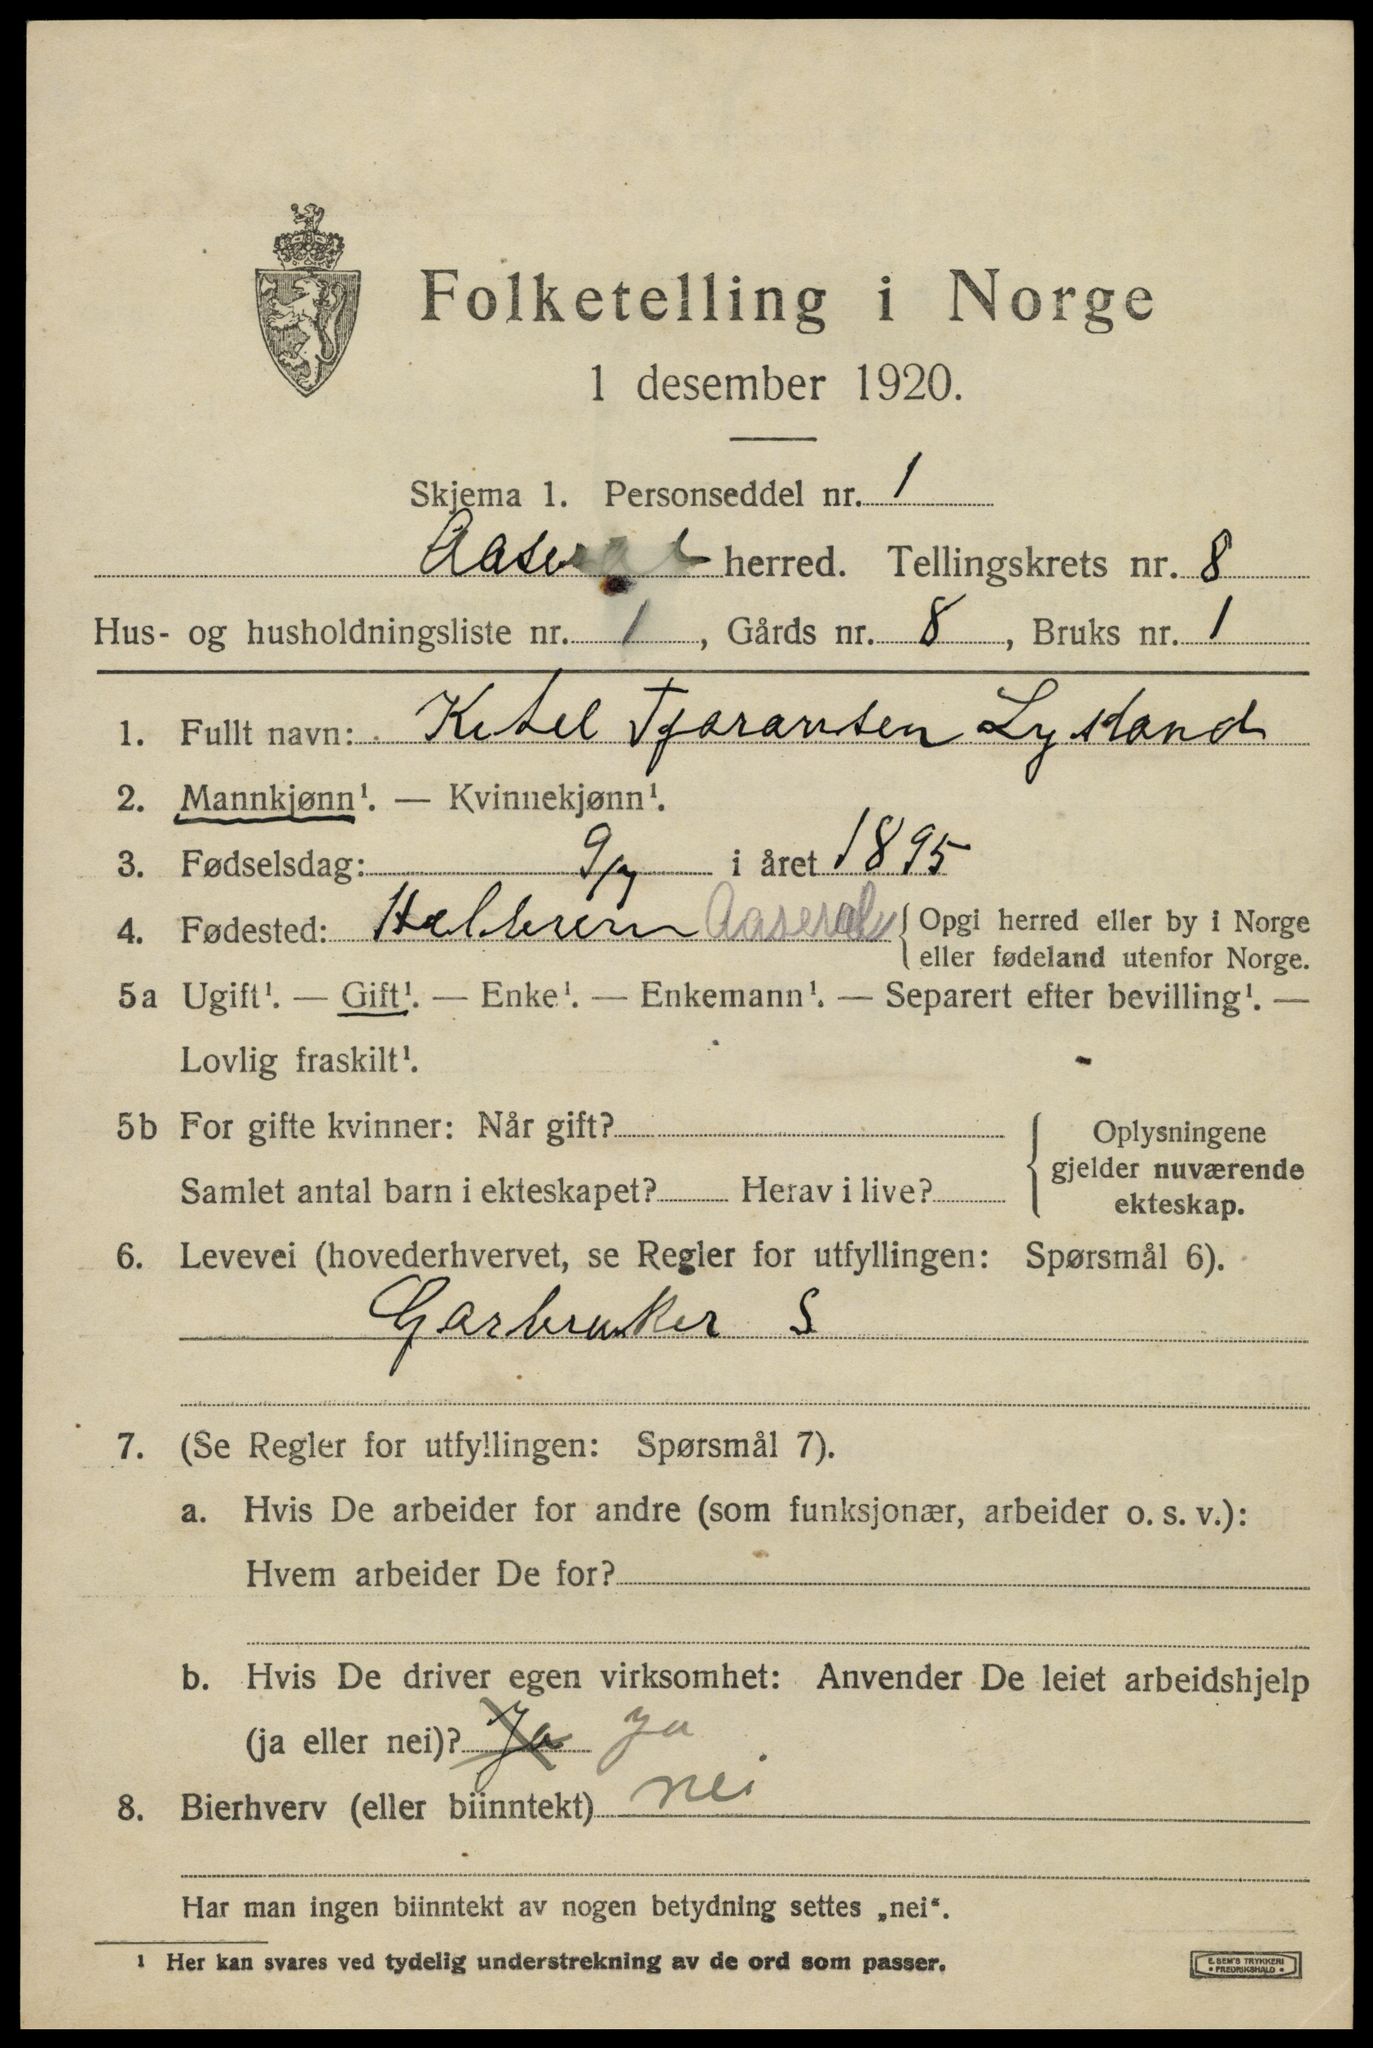 Folketelling i Norge
1 desember 1920.
Skjema 1. Personseddel nr. 1
Aaseral herred. Tellingskrets nr. 8
Hus- og husholdningsliste nr. 1, Gårds nr. 8, Bruks nr. 1
1. Fullt navn: Ketel Tjaransen Lystand
2. Mannkjønn¹. — Kvinnekjønn¹.
3. Fødselsdag: 9/7 i året 1895
4. Fødested: Aaseral { Opgi herred eller by i Norge
eller fødeland utenfor Norge.
5a Ugift¹. — Gift¹. — Enke¹. — Enkemann¹. — Separert efter bevilling¹. —
Lovlig fraskilt¹.
5b For gifte kvinner: Når gift?
Samlet antal barn i ekteskapet? Herav i live?
Oplysningene
gjelder nuværende
ekteskap.
6. Levevei (hovederhvervet, se Regler for utfyllingen: Spørsmål 6).
Garbruker S
7. (Se Regler for utfyllingen: Spørsmål 7).
a. Hvis De arbeider for andre (som funksjonær, arbeider o. s. v.):
Hvem arbeider De for?
b. Hvis De driver egen virksomhet: Anvender De leiet arbeidshjelp
(ja eller nei)? Ja ja
8. Bierhverv (eller biinntekt) nei
Har man ingen biinntekt av nogen betydning settes „nei“.
¹ Her kan svares ved tydelig understrekning av de ord som passer.
E. SEM'S TRYKKERI
• FREDRIKSHALD •